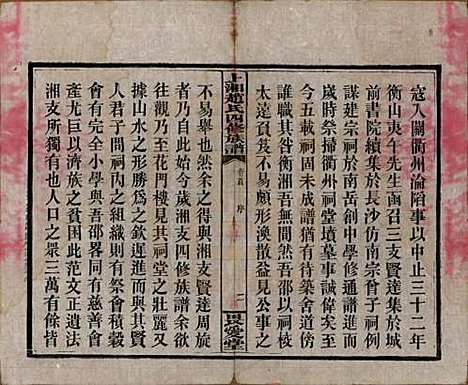 寇入關衢州淪陷事以中止三十二年
衡山夷午先生函召三支賢達集於城
前書院續集於長沙仿南宗曾子祠例
謀建宗祠於南岳創中學聯通譜進而
歲時祭掃衢州祠堂墳墓事誠偉矣於
今五載祠固未成譜猶有待築舍道傍
誰職其咎衡湘吾無間然吾邵以祠校
太遠貧笈不易頗形渙散益見公事之
上湘趙氏四修族譜
卷首
序
二
不易舉也然余之得與湘支賢達周旋
者乃自此始今歲湘支四修族譜余欲
往觀乃至花門樓見其祠堂之壯麗又
據山水之形勝為之欽遲進而與其賢
人君子游問祠內之組織則有祭會積穀
會有完全小學與吾邵畧同有慈善會
產尤巨以濟族之困此范文正義莊
湘支所獨有也人口之眾三萬有餘皆